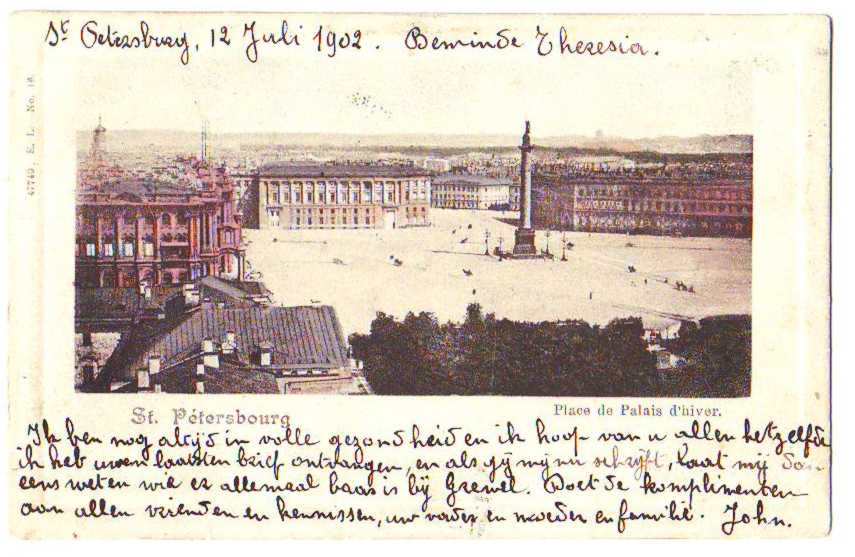 St Petersburg, 12 Juli 1902. Beminde Theresia.
47749, E. L. No. 16
St. Pétersbourg
Place de Palais d'hiver.
Ik ben nog altijd in volle gezondheid en ik hoop van u allen hetzelfde
ik heb uwen laatsten brief ontvangen, en als gij mij nu schrijft, laat mij dan
eens weten wie er allemaal baas is bij Grewel. Doet de komplimenten
aan allen vrienden en kennissen, uw vader en moeder en familie. John.